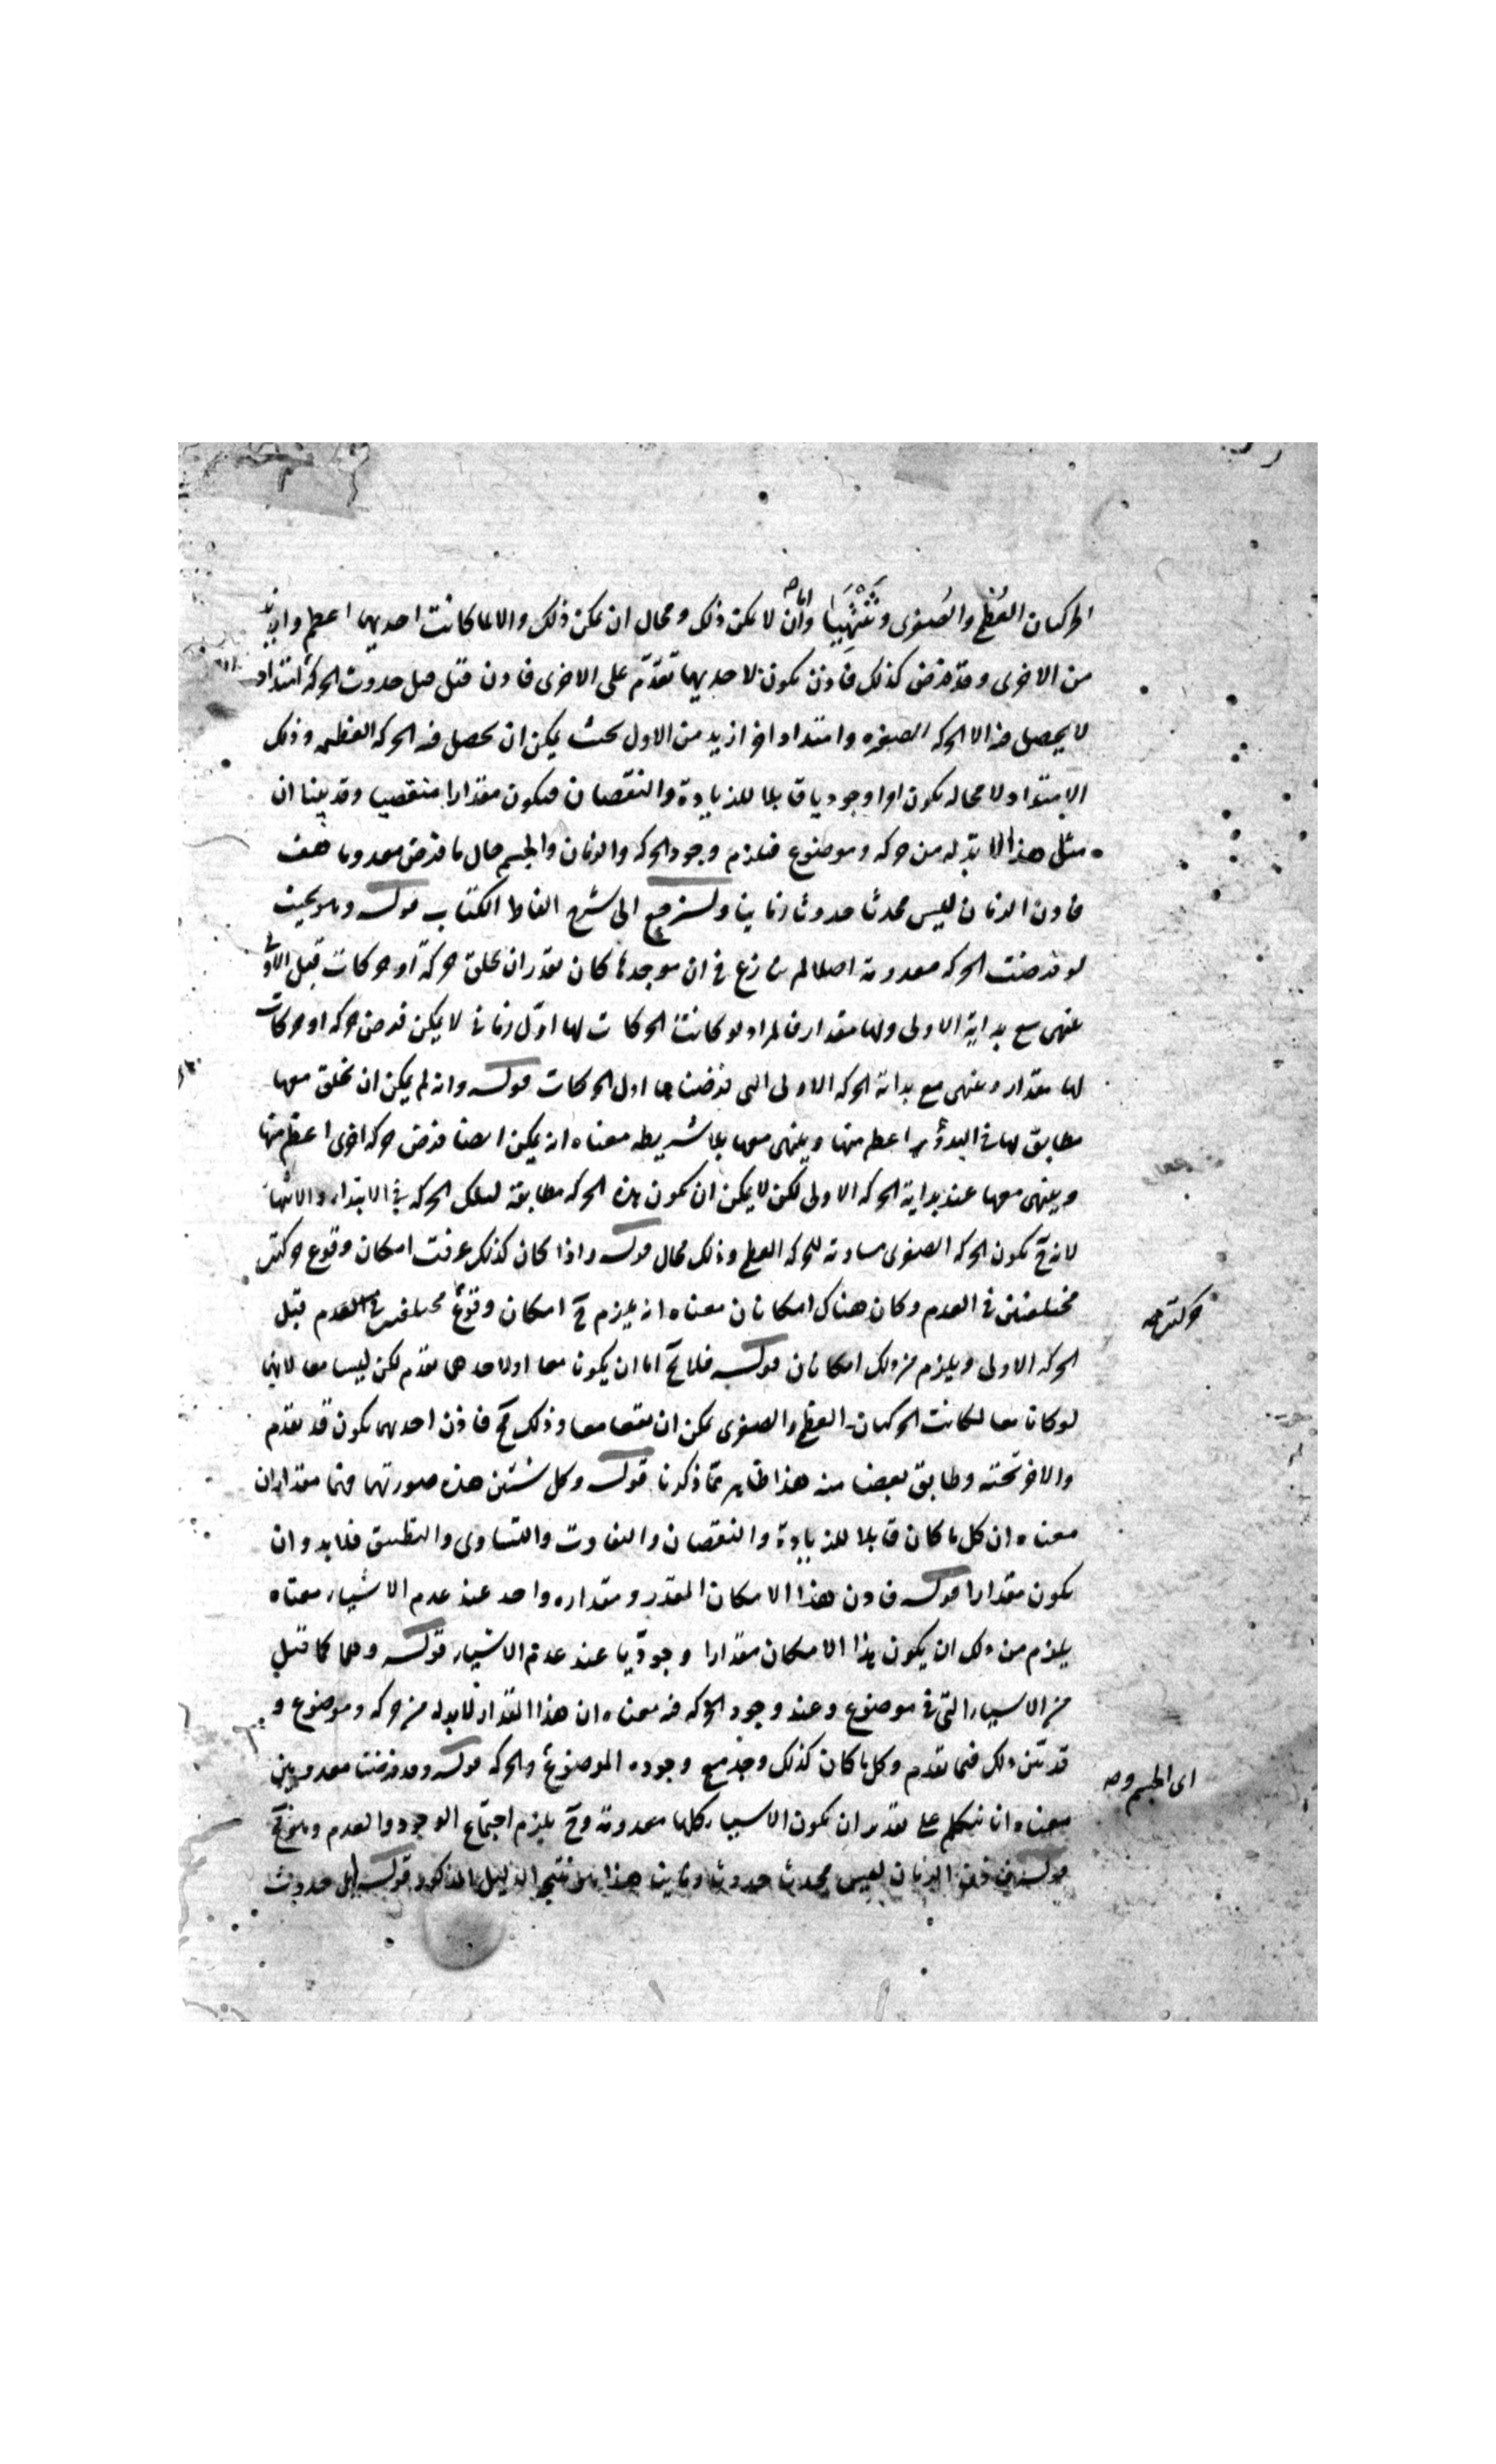 الحركتان العُظمى والصُغرى وتنتهيا واما ان لا يمكن ذلك ومحال ان يمكن ذلك والا لما كانت احديهما اعظم وازيد
من الاخرى وقد فرض كذلك فاذن يكون لاحديهما تقدّم على الاخرى فاذن قبل حدوث الحركة امتداد
لا يحصل فيه الا الحركه الصغرى وامتداد اخر ازيد من الاول بحيث يمكن ان يحصل فيه الحركه العظمى وذلك
الامتداد لا محاله يكون امرا وجوديا قابلا للزيادة والنقصان فيكون مقدارا منقضيا وقد بينا ان
مثل هذا لا بد له من حركه وموضوع فيلزم وجود الحركه والزمان والجسم حال ما فرض معدوما هف
فاذن الزمان ليس محدثا حدوثا زمانيا ولنرجع الى شرح الفاظ الكتاب قوله وهو بحيث
لو فرضت الحركه معدومة اصلا لم ينازع في ان موجدها كان يقدر ان يخلق حركة او حركات قبل الاولى
ينتهى مع بداية الاولى ولها مقدار فالمراد لو كانت الحركات لها اوّل زمانى لا يمكن فرض حركه او حركات
لها مقدار وينتهى مع بداية الحركه الاولى التى فرضناها اول الحركات قوله وانه لم يمكن ان تخلق معها
مطابق لها فى البدؤ اعظم منها وينتهى معها بلا شريطه معناه انه يمكن ايضا فرض حركه اخرى اعظم منها
وينتهى معها عند بداية الحركه الاولى لكن لا يمكن ان يكون هذه الحركه مطابقة لتلك الحركه فى الابتداء والانتهاء
لانه ح يكون الحركه الصغرى مساوية للحركه العظمى وذلك محال قوله واذا كان كذلك عرفت امكان وقوع حركتين
مختلفتين فى العدم وكان هناك امكانان معناه انه يلزم ح امكان وقوع مختلفتين فى العدم قبل
حركتين صح
الحركه الاولى ويلزم من ذلك امكانان قوله فلا يخ اما ان يكونا معا او لاحدهما تقدم لكن ليسا معا لانهما
لو كانا معا لكانت الحركتان العظمى والصغرى يمكن ان يقعا معا وذلك مح فاذن احدهما يكون قد تقدم
والاخر تحته وطابق بعضا منه هذا ظاهر مما ذكرنا قوله وكل شيئين هذه صورتهما فهما مقداران
معناه ان كل ما كان قابلا للزيادة والنقصان والتفاوت والتساوى والتطبيق فلا بد وان
يكون مقدارا قوله فاذن هذا الامكان المقدر ومقداره واحد عند عدم الاشياء معناه
يلزم من ذلك ان يكون هذا الامكان مقدارا وجوديّا عند عدم الاشياء قوله وهما كما قيل
من الاشياء التى فى موضوع وعند وجود الحركه فيه معناه ان هذا المقدار لا بد له من حركه وموضوع و
قد تبيّن ذلك فيما تقدم وكل ما كان كذلك وجد مع وجوده الموضوع والحركه قوله وقد فرضت معدومين
اى الجسم وصح
معناه انا نتكلم على تقدير ان يكون الاشياء كلها معدومة وح يلزم اجتماع الوجود والعدم وهو مح
قوله فاذن الزمان ليس محدث حدوثا زمانيا هذا هو نتيجه الدليل المذكور قوله بل حدوث